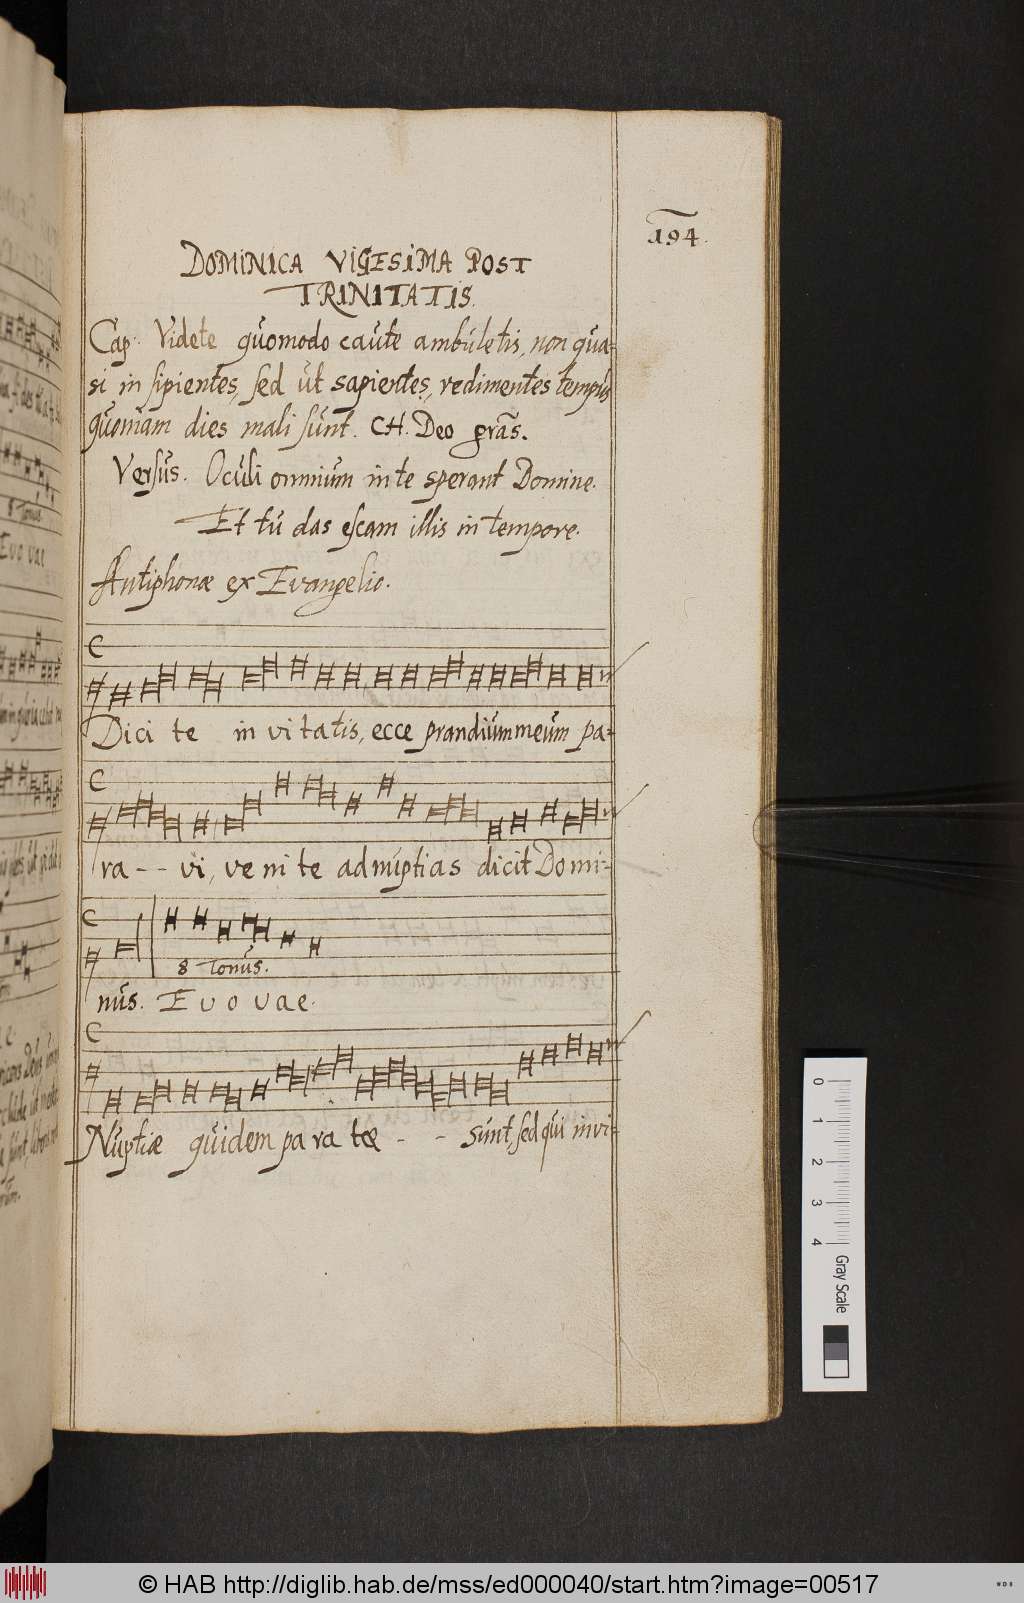 194.
DOMINICA VIGESIMA POST
TRINITATIS.
Cap. Videte quomodo caute ambuletis, non qua-
si in sipientes, sed ut sapientes, redimentes tempus
quoniam dies mali sunt. CH. Deo gras.
Versus. Oculi omnium in te sperant Domine.
Et tu das escam illis in tempore.
Antiphonæ ex Evangelio.
Dici te in vi tatis, ecce prandium meum pa-
ra - - vi, ve ni te ad nuptias dicit Domi-
8 Tonus.
nus. E v o v a e.
Nuptiæ quidem pa ra tæ - - sunt, sed qui invi-
8 Tonus.
E v o vae
0 1 2 3 4 Gray Scale
© HAB http://diglib.hab.de/mss/ed000040/start.htm?image=00517